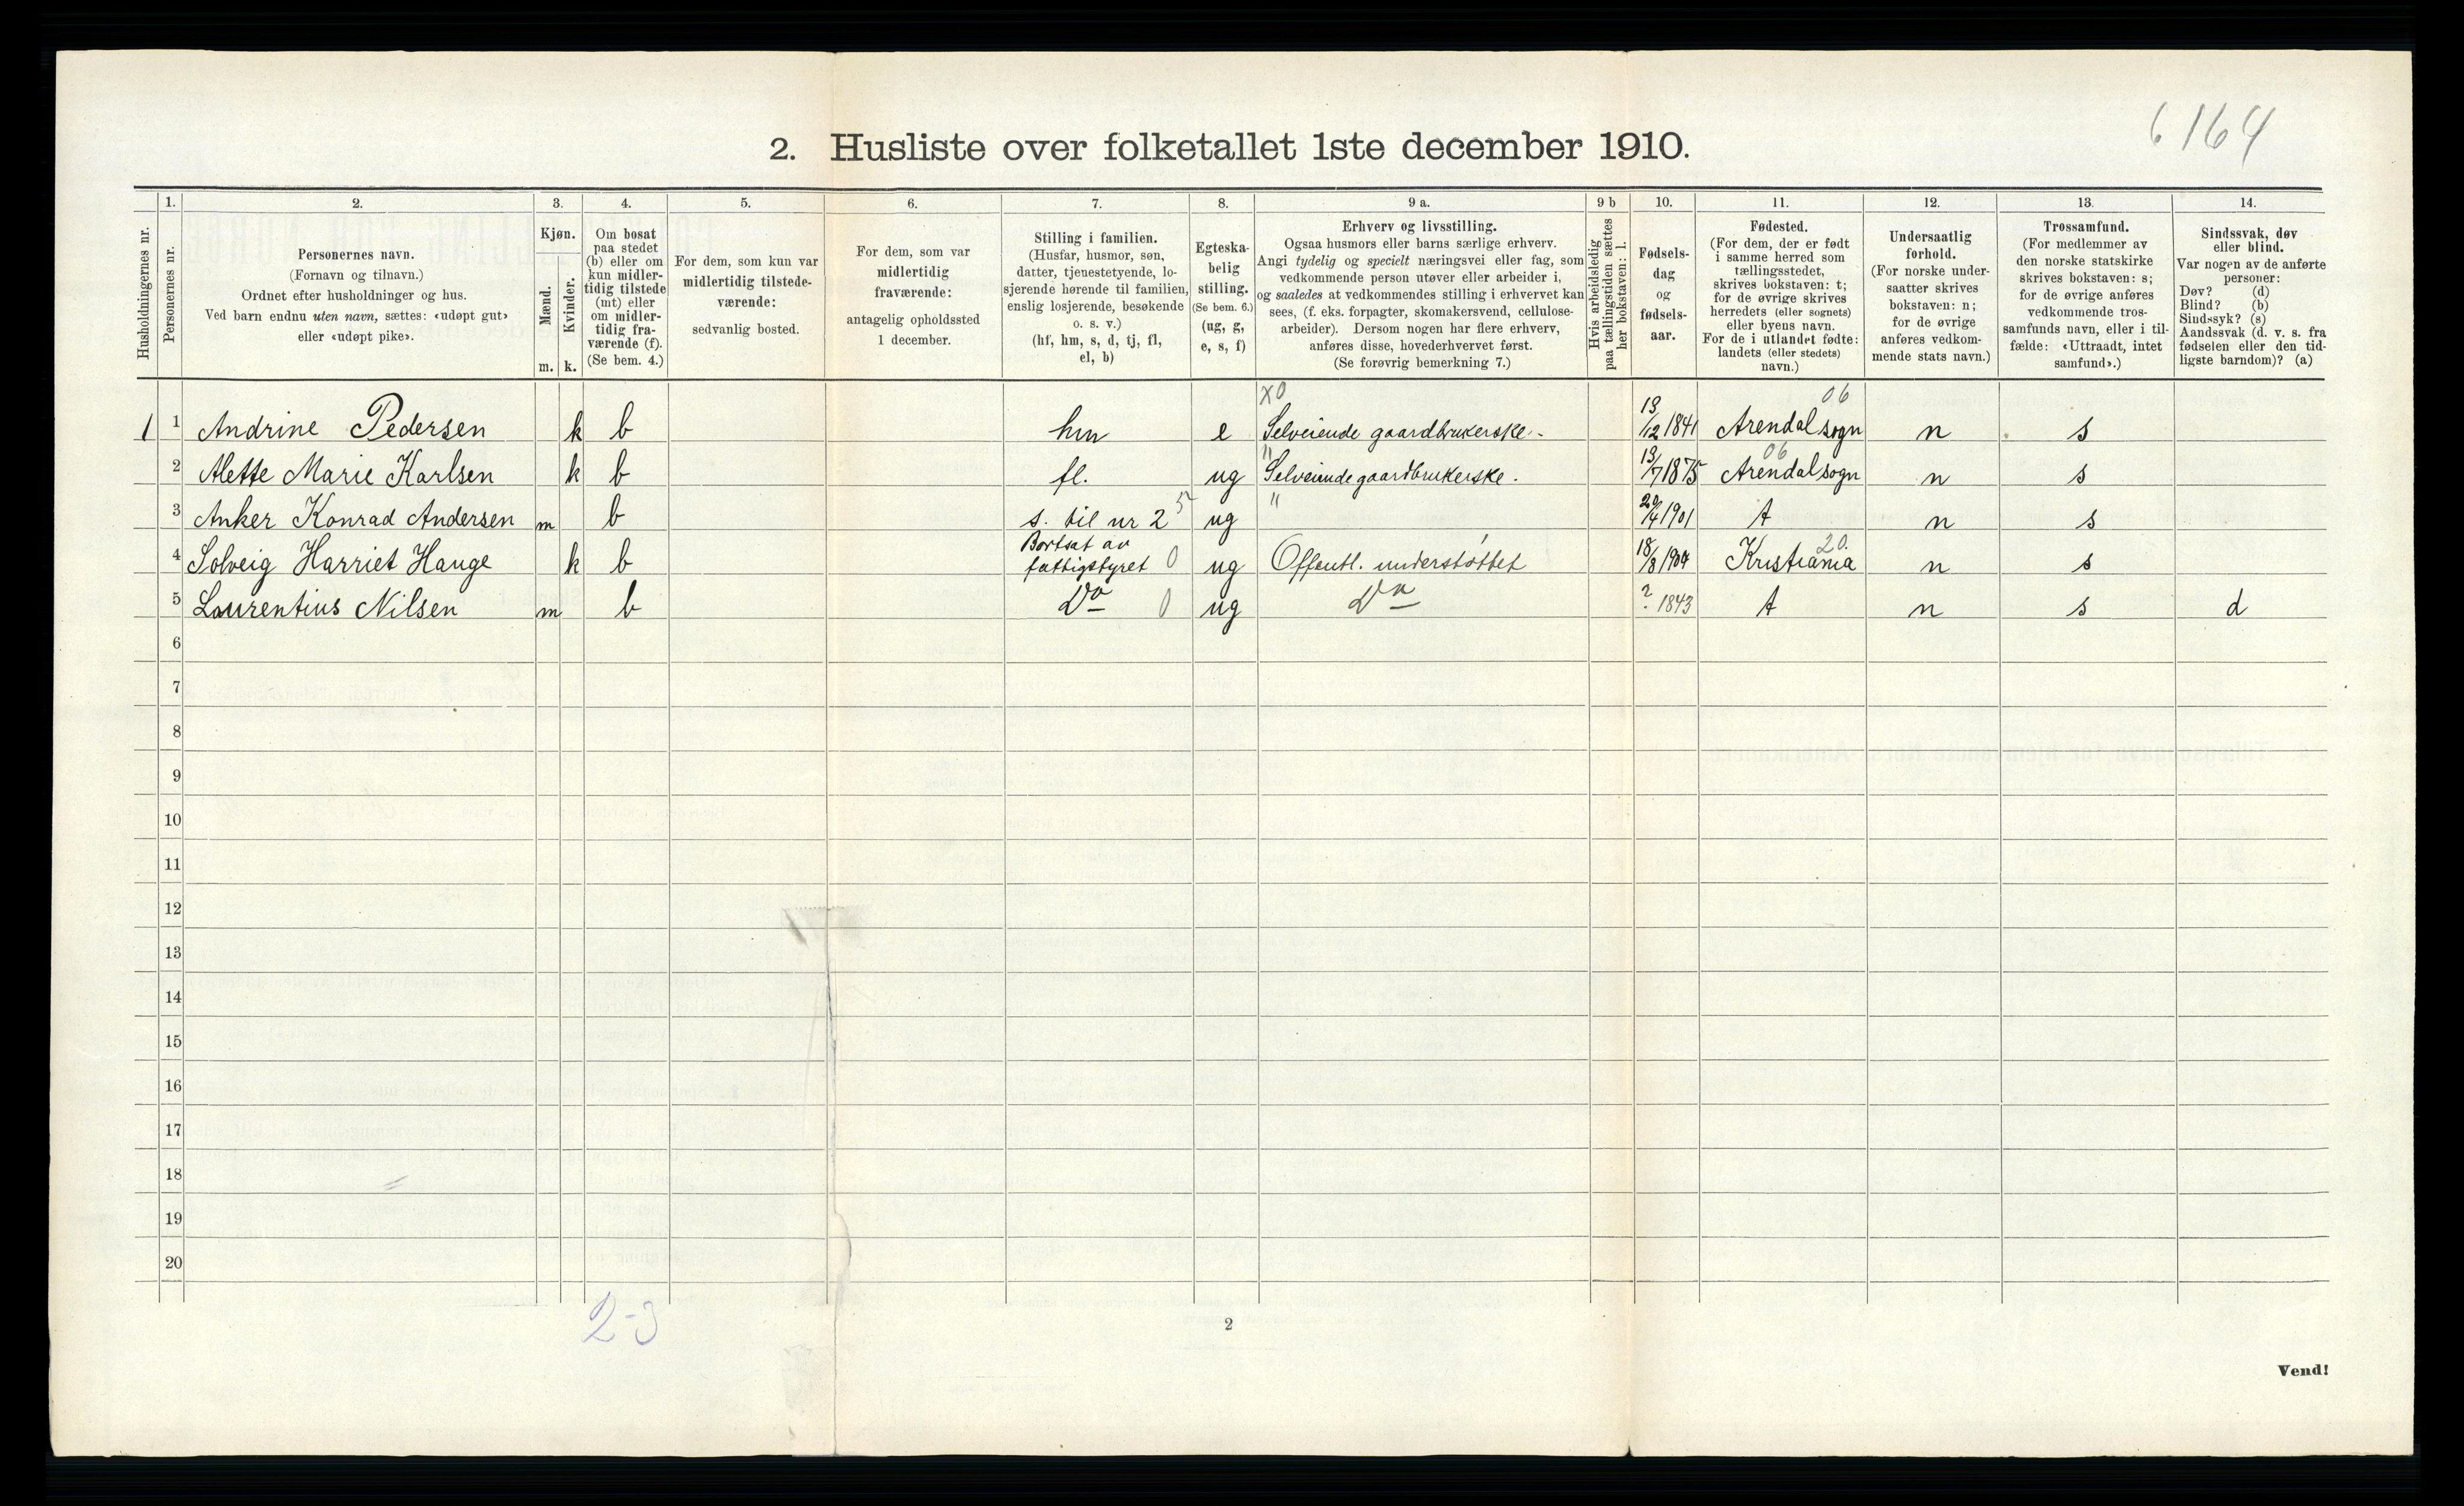 6 164
2. Husliste over folketallet 1ste december 1910.
Husholdningernes nr.
1.
Personernes nr.
2.
Personernes navn.
(Fornavn og tilnavn.)
Ordnet efter husholdninger og hus.
Ved barn endnu uten navn, sættes: «udøpt gut»
eller «udøpt pike».
3.
Kjøn.
Mænd.
Kvinder.
m. k.
4.
Om bosat
paa stedet
(b) eller om
kun midler-
tidig tilstede
(mt) eller
om midler-
tidig fra-
værende (f).
(Se bem. 4.)
5.
For dem, som kun var
midlertidig tilstede-
værende:
sedvanlig bosted.
6.
For dem, som var
midlertidig
fraværende:
antagelig opholdssted
1 december.
7.
Stilling i familien.
(Husfar, husmor, søn,
datter, tjenestetyende, lo-
sjerende hørende til familien,
enslig losjerende, besøkende
o. s. v.)
(hf, hm, s, d, tj, fl,
el, b)
8.
Egteska-
belig
stilling.
(Se bem. 6.)
(ug, g,
e, s, f)
9 a.
Erhverv og livsstilling.
Ogsaa husmors eller barns særlige erhverv.
Angi tydelig og specielt næringsvei eller fag, som
vedkommende person utøver eller arbeider i,
og saaledes at vedkommendes stilling i erhvervet kan
sees, (f. eks. forpagter, skomakersvend, cellulose-
arbeider). Dersom nogen har flere erhverv,
anføres disse, hovederhvervet først.
(Se forøvrig bemerkning 7.)
9 b
Hvis arbeidsledig
paa tællingstiden sættes
her bokstaven: l.
10.
Fødsels-
dag
og
fødsels-
aar.
11.
Fødested.
(For dem, der er født
i samme herred som
tællingsstedet,
skrives bokstaven: t;
for de øvrige skrives
herredets (eller sognets)
eller byens navn.
For de i utlandet fødte:
landets (eller stedets)
navn.)
12.
Undersaatlig
forhold.
(For norske under-
saatter skrives
bokstaven: n;
for de øvrige
anføres vedkom-
mende stats navn.)
13.
Trossamfund.
(For medlemmer av
den norske statskirke
skrives bokstaven: s;
for de øvrige anføres
vedkommende tros-
samfunds navn, eller i til-
fælde: «Uttraadt, intet
samfund».)
14.
Sindssvak, døv
eller blind.
Var nogen av de anførte
personer:
Døv? (d)
Blind? (b)
Sindssyk? (s)
Aandssvak (d. v. s. fra
fødselen eller den tid-
ligste barndom)? (a)
X0 06
1 1 Andrine Pedersen k b hm e Selveiende gaardbrukerske. 13/12 1841 Arendal sogn n s
" 06
2 Alette Marie Karlsen k b fl. ug Selveiende gaardbrukerske. 13/7 1875 Arendal sogn n s
3 Anker Konrad Andersen m b s. til nr 2 ug " 20/4 1901 t n s
Bortsat av 20.
4 Solveig Harriet Hauge k b fattigstyret 0 ug Offentl. understøttet 18/8 1904 Kristiania n s
5 Laurentius Nilsen m b Do 0 ug Do ? 1843 t n s d
6
7
8
9
10
11
12
13
14
15
16
17
18
19
20
2-3
2
Vend!